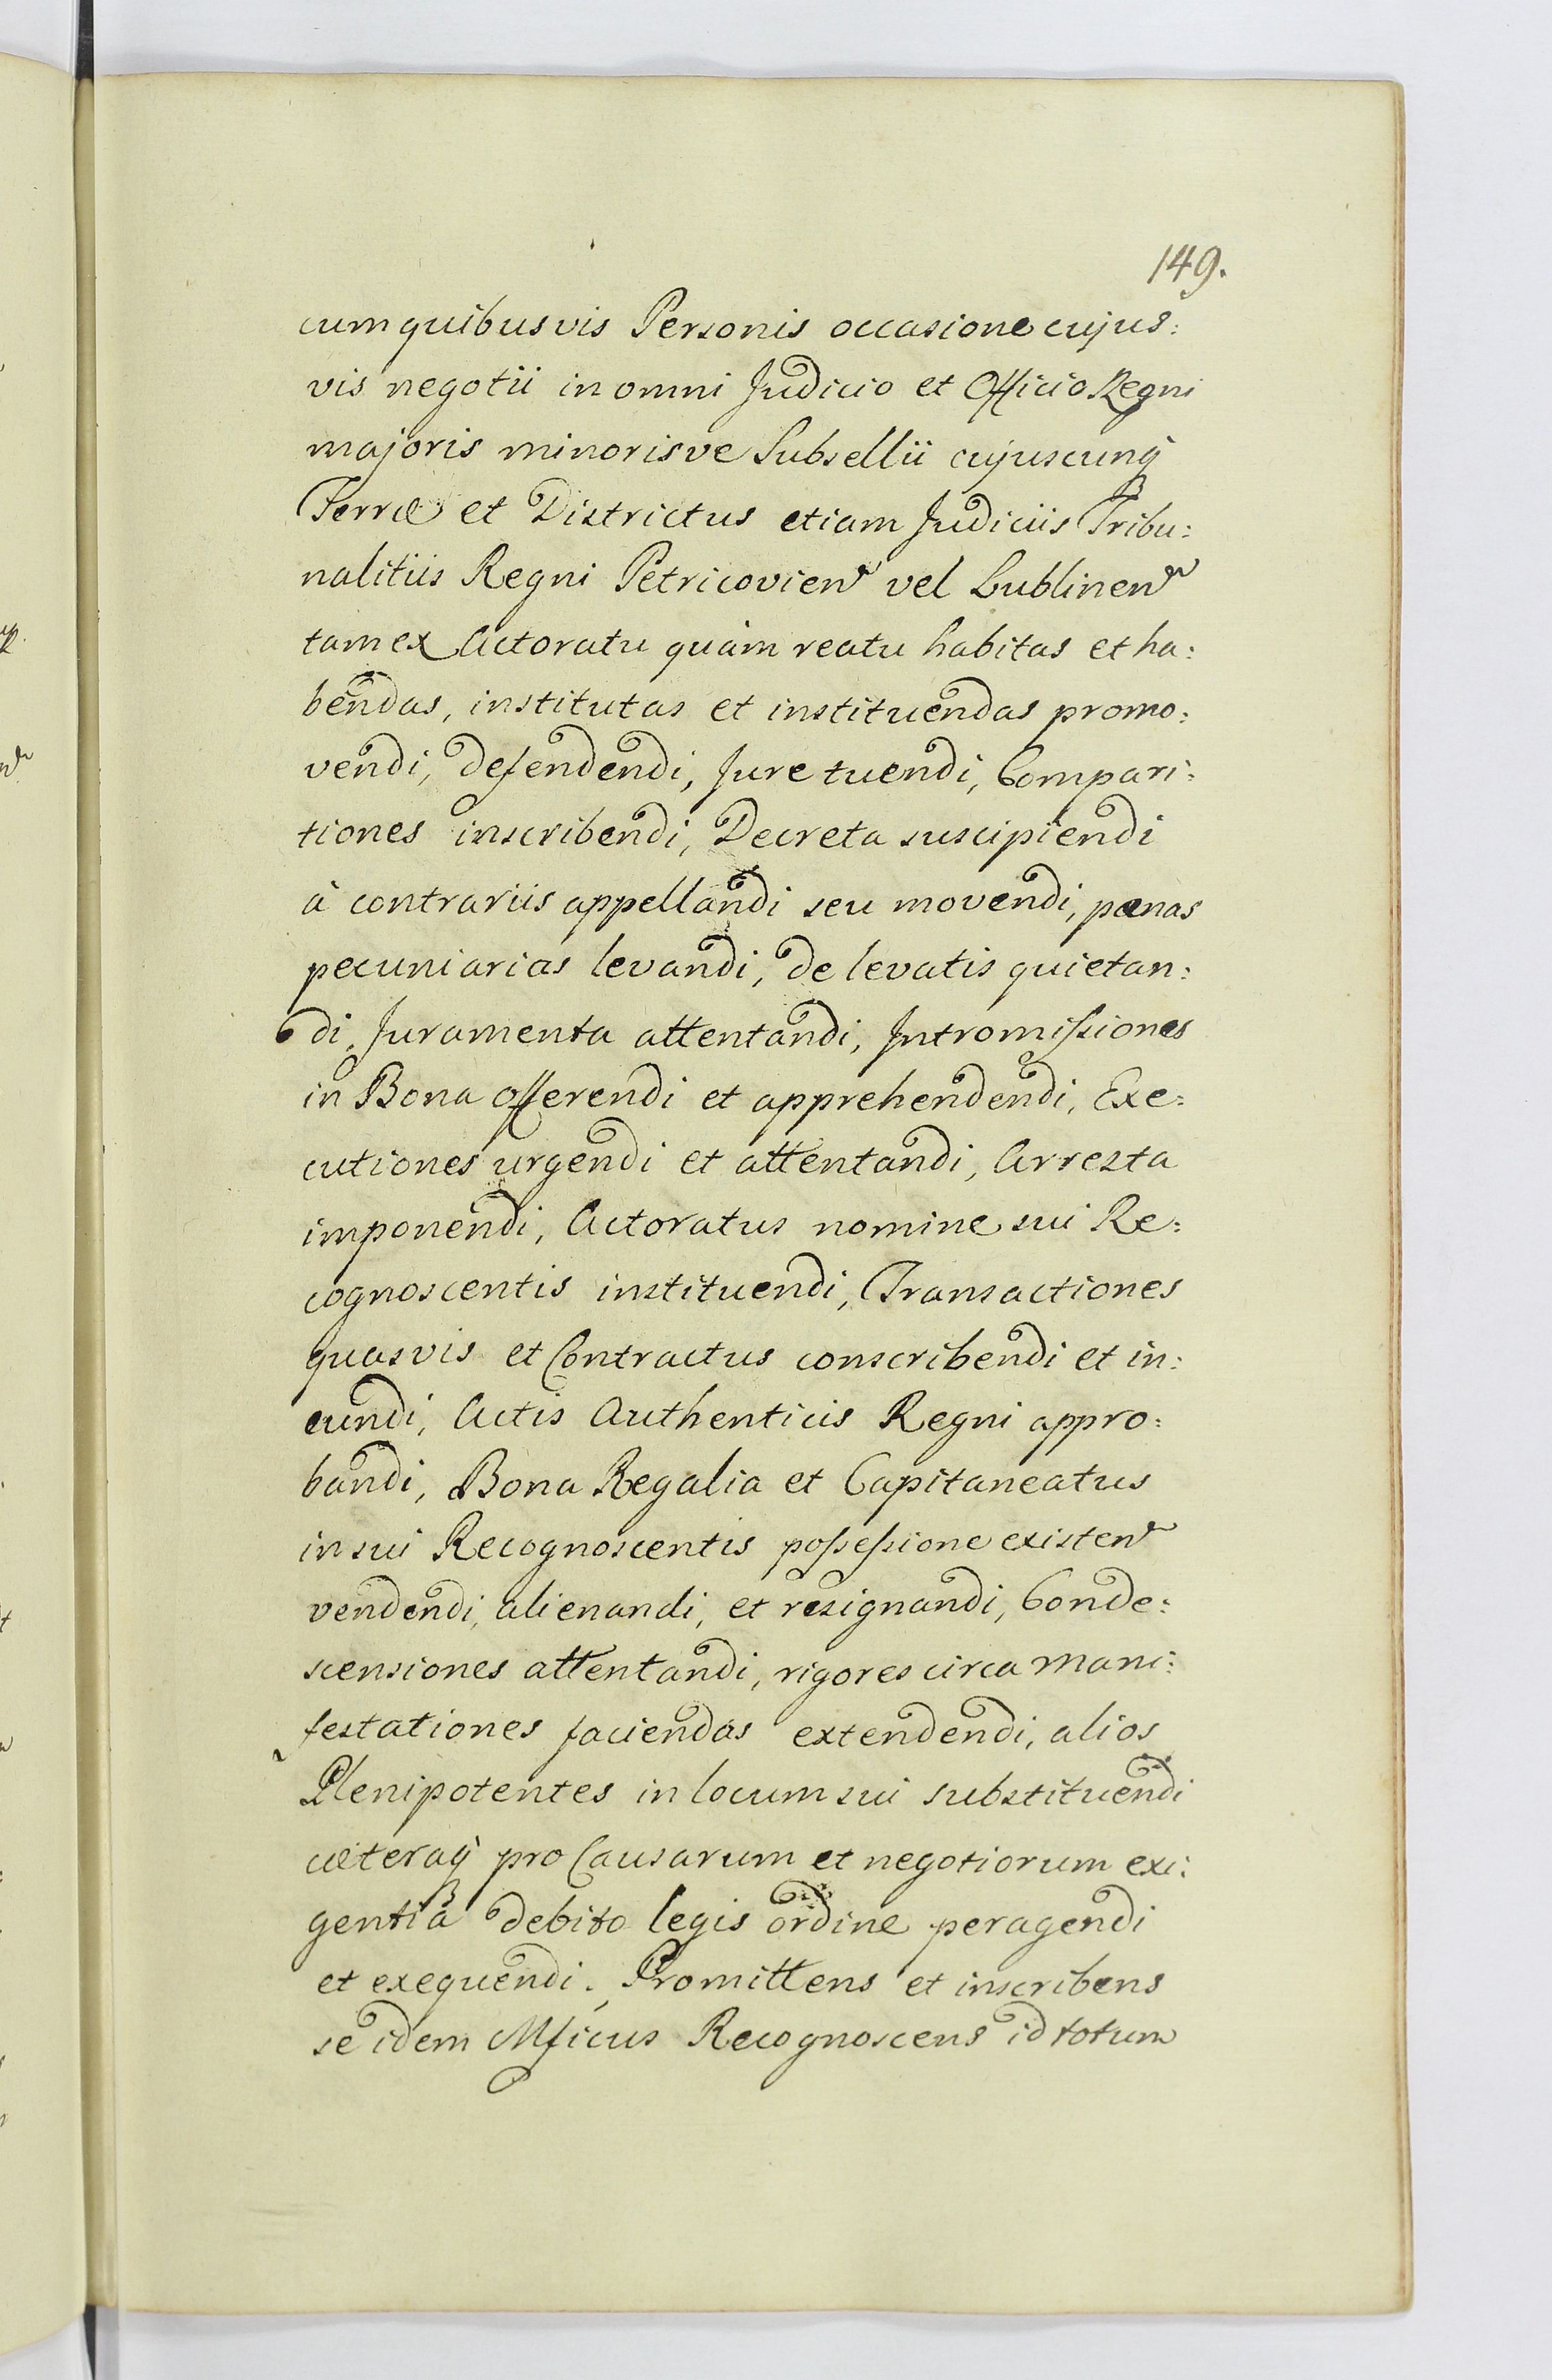 149.
cum quibusvis Personis occasione cujus:
vis negotii in omni Judicio et Officio Regni
majoris minorisve Subsellii cujuscunq̃
Terræ et Districtus etiam Judiciis Tribu:
nalitiis Regni Petricovien̄ vel Lublinen̄
tam ex Actoratu quàm reatu habitas et ha:
bendas, institutas et instituendas promo:
vendi, defendendi, Jure tuendi, Compari:
tiones inscribendi, Decreta suscipiendi
à contrariis appellandi seu movendi, pænas
pecuniarias levandi, de levatis quietan:
di, Juramenta attentandi, Intromiſsiones
in Bona offerendi et apprehendendi, Exe:
cutiones urgendi et attentandi, Arresta
imponendi, Actoratus nomine sui Re:
cognoscentis instituendi, Transactiones
quasvis et Contractus conscribendi et in:
eundi, Actis Authenticis Regni appro:
bandi, Bona Regalia et Capitaneatus
in sui Recognoscentis poſseſsione existen̄
vendendi, alienandi, et resignandi, Conde:
scensiones attentandi, rigores circa Mani:
festationes faciendas extendendi, alios
Plenipotentes in locum sui substituendi
cæteraq̃ pro Causarum et negotiorum exi:
gentiâ debito legis ordine peragendi
et exequendi. Promittens et inscribens
se idem Mficus Recognoscens id totum